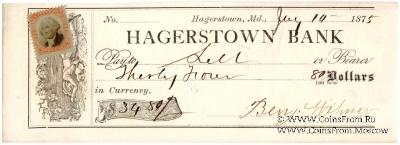 No. Hagerstown, Md., July 10 1875
HAGERSTOWN BANK
Pay to Self or Bearer
Thirty Four 80/100 Dollars
in Currency.
$34 80/
© www.CoinsFrom.Ru
www.CoinsFrom.Moscow